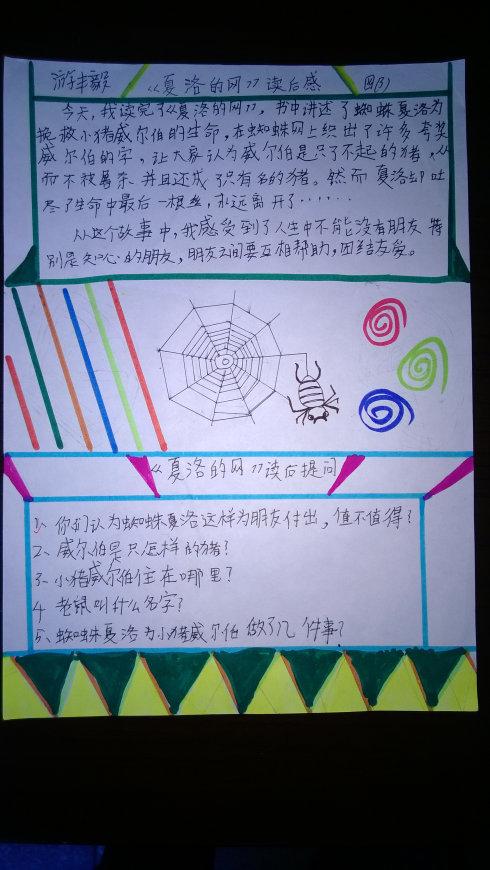 游丰毅 《夏洛的网》读后感
今天,我读完了《夏洛的网》,书中讲述了蜘蛛夏洛为
挽救小猪威尔伯的生命,在蜘蛛网上织出了许多夸奖
威尔伯的字,让大家认为威尔伯是只了不起的猪,从
而不被暑杀并且还成了只有名的猪。然而夏洛却吐
尽了生命中最后一根丝,永远离开了……
从这个故事中,我感受到了人生中不能没有朋友特
别是知心的朋友,朋友之间要互相帮助,团结友爱。
《夏洛的网》读后提问
1、你们认为蜘蛛夏洛这样为朋友付出,值不值得?
2、威尔伯是只怎样的猪?
3、小猪威尔伯住在哪里?
4、老鼠叫什么名字?
5、蜘蛛夏洛为小猪威尔伯做了几件事?